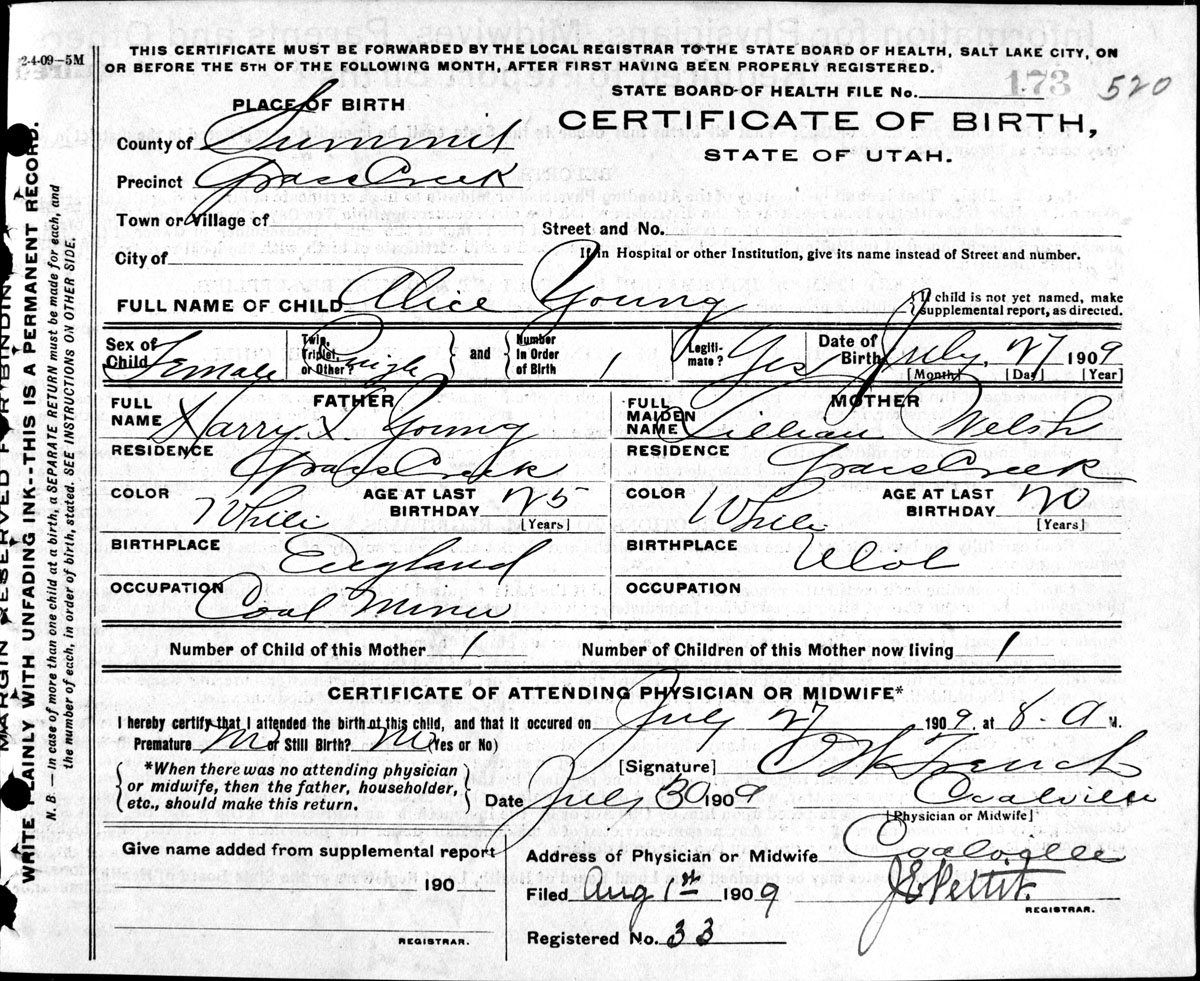 2-4-09-5M
THIS CERTIFICATE MUST BE FORWARDED BY THE LOCAL REGISTRAR TO THE STATE BOARD OF HEALTH, SALT LAKE CITY, ON
OR BEFORE THE 5TH OF THE FOLLOWING MONTH, AFTER FIRST HAVING BEEN PROPERLY REGISTERED.
STATE BOARD OF HEALTH FILE No. 173 520
PLACE OF BIRTH
CERTIFICATE OF BIRTH,
STATE OF UTAH.
County of Summit
Precinct Grass Creek
Town or Village of
Street and No.
City of
If in Hospital or other Institution, give its name instead of Street and number.
FULL NAME OF CHILD Alice Young
If child is not yet named, make supplemental report, as directed.
Sex of Child Female
Twin, Triplet, or Other? Single
and
Number In Order of Birth 1
Legitimate? Yes
Date of Birth July, 27 1909
[Month] [Day] [Year]
FATHER
FULL NAME Harry Young
RESIDENCE Grass Creek
COLOR White
AGE AT LAST BIRTHDAY 25
[Years]
BIRTHPLACE England
OCCUPATION Coal Miner
MOTHER
FULL MAIDEN NAME Lillian Welsh
RESIDENCE Grass Creek
COLOR White
AGE AT LAST BIRTHDAY 20
[Years]
BIRTHPLACE
OCCUPATION
Number of Child of this Mother 1
Number of Children of this Mother now living 1
CERTIFICATE OF ATTENDING PHYSICIAN OR MIDWIFE*
I hereby certify that I attended the birth of this child, and that it occured on July 27 1909. at 8-A M.
Premature No or Still Birth? No (Yes or No)
*When there was no attending physician
or midwife, then the father, householder,
etc., should make this return.
[Signature] French
Date July 30 1909
Coalville
[Physician or Midwife]
Give name added from supplemental report
190
REGISTRAR.
Address of Physician or Midwife Coalville
Filed Aug 1st 1909
J E Pettit.
REGISTRAR.
Registered No. 33
MARGIN RESERVED FOR BINDING
WRITE PLAINLY WITH UNFADING INK--THIS IS A PERMANENT RECORD.
N. B. — in case of more than one child at a birth, a SEPARATE RETURN must be made for each, and
the number of each, in order of birth, stated. SEE INSTRUCTIONS ON OTHER SIDE.